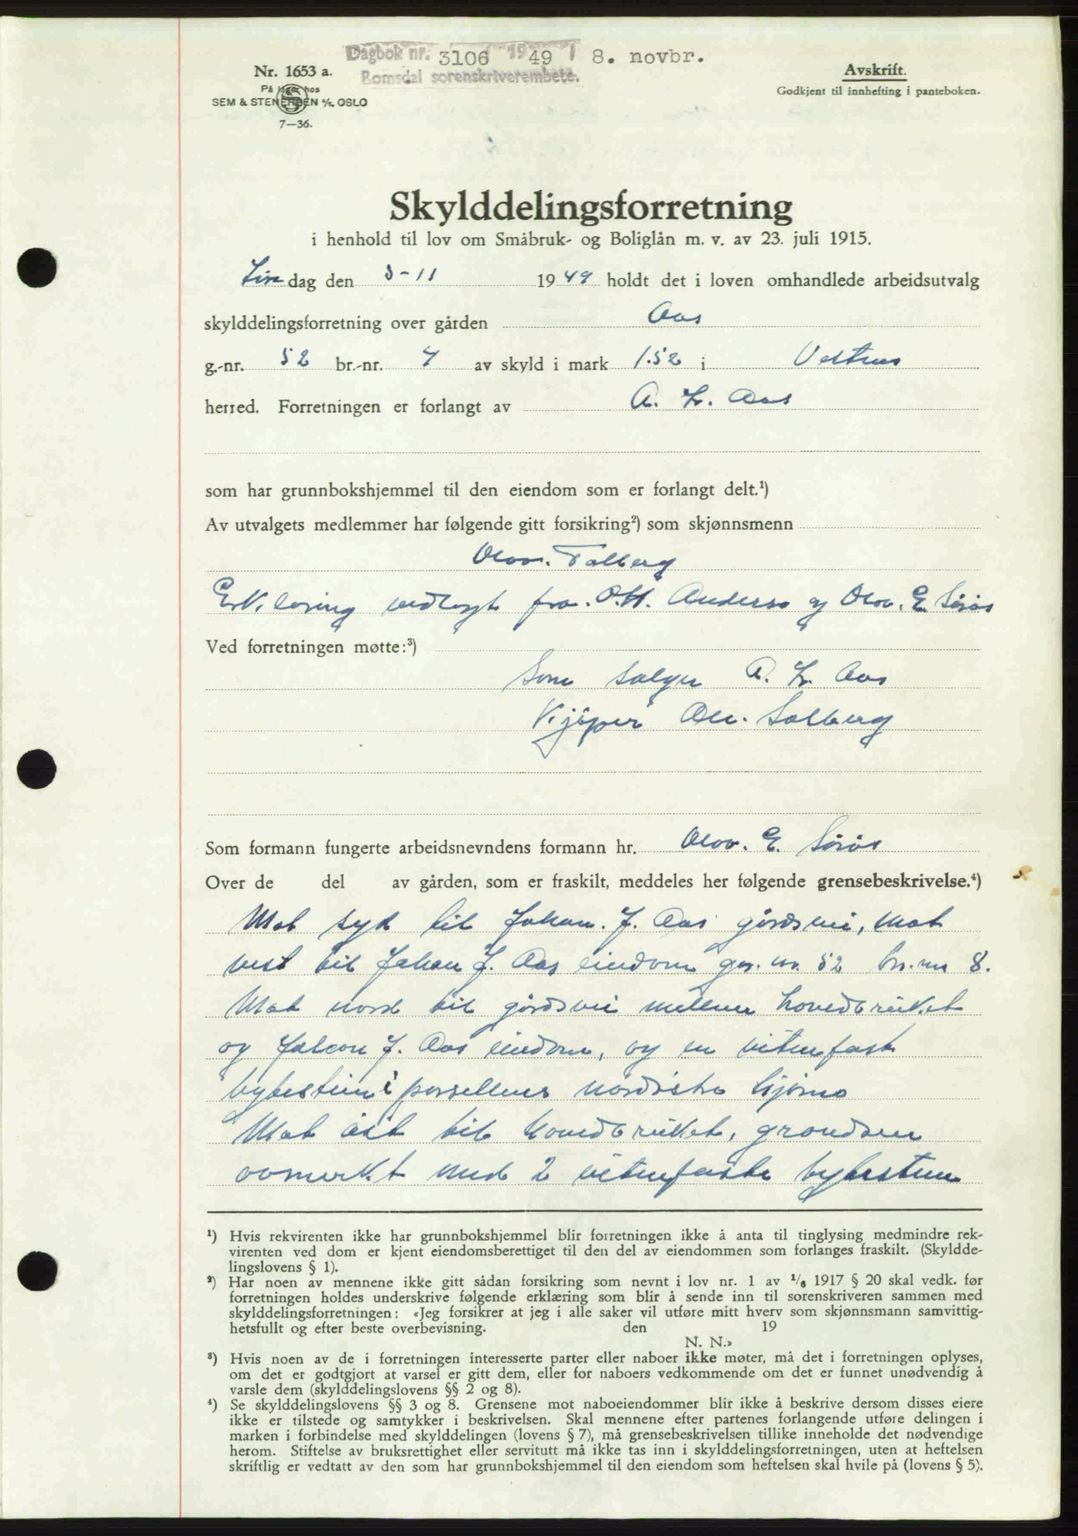 Dagbok nr. 3106 1949 8. novbr.
Romsdal sorenskriverembete.
Nr. 1653 a.
På lager hos
SEM & STENERSEN A/S, OSLO
7—36.
Avskrift.
Godkjent til innhefting i panteboken.
Skylddelingsforretning
i henhold til lov om Småbruk- og Boliglån m. v. av 23. juli 1915.
dag den 3-11 1949 holdt det i loven omhandlede arbeidsutvalg
skylddelingsforretning over gården Aas
g.-nr. 52 br.-nr. 7 av skyld i mark 1.52 i Vestnes
herred. Forretningen er forlangt av A. L. Aas
som har grunnbokshjemmel til den eiendom som er forlangt delt.¹)
Av utvalgets medlemmer har følgende gitt forsikring²) som skjønnsmenn
Olov. Talberg
Erklæring vedlagt fra O. H. Anderss og Olov. E. Sørås
Ved forretningen møtte:³)
Som selger A. L. Aas
Kjøper Ole. Solberg
Som formann fungerte arbeidsnevndens formann hr. Olov. E. Sørås
Over de del av gården, som er fraskilt, meddeles her følgende grensebeskrivelse.⁴)
Mot syd til Johan. J. Aas gårdsvei, mot
vest til Johan J. Aas eiendom gr. nr. 52 br. nr 8.
Mot nord til gårdsvei mellem hovedbruket
og J. Aas eiendom, og en vitenfast
bytestein i parsellens nordøstre hjørne
Mot øst til hovedbruket, grensen
avmerkt med 2 vitenfaste bytesteine
¹) Hvis rekvirenten ikke har grunnbokshjemmel blir forretningen ikke å anta til tinglysing medmindre rek-
virenten ved dom er kjent eiendomsberettiget til den del av eiendommen som forlanges fraskilt. (Skyldde-
lingslovens § 1).
²) Har noen av mennene ikke gitt sådan forsikring som nevnt i lov nr. 1 av 1/6 1917 § 20 skal vedk. før
forretningen holdes underskrive følgende erklæring som blir å sende inn til sorenskriveren sammen med
skylddelingsforretningen: «Jeg forsikrer at jeg i alle saker vil utføre mitt hverv som skjønnsmann samvittig-
hetsfullt og efter beste overbevisning. den 19
N. N.»
³) Hvis noen av de i forretningen interesserte parter eller naboer ikke møter, må det i forretningen oplyses,
om det er godtgjort at varsel er gitt dem, eller for naboers vedkommende om det er funnet unødvendig å
varsle dem (skylddelingslovens §§ 2 og 8).
⁴) Se skylddelingslovens §§ 3 og 8. Grensene mot naboeiendommer blir ikke å beskrive dersom disses eiere
ikke er tilstede og samtykker i beskrivelsen. Skal mennene efter partenes forlangende utføre delingen i
marken i forbindelse med skylddelingen (lovens § 7), må grensebeskrivelsen tillike inneholde det nødvendige
herom. Stiftelse av bruksrettighet eller servitutt må ikke tas inn i skylddelingsforretningen, uten at heftelsen
skriftlig er vedtatt av den som har grunnbokshjemmel til den eiendom som heftelsen skal hvile på (lovens § 5).